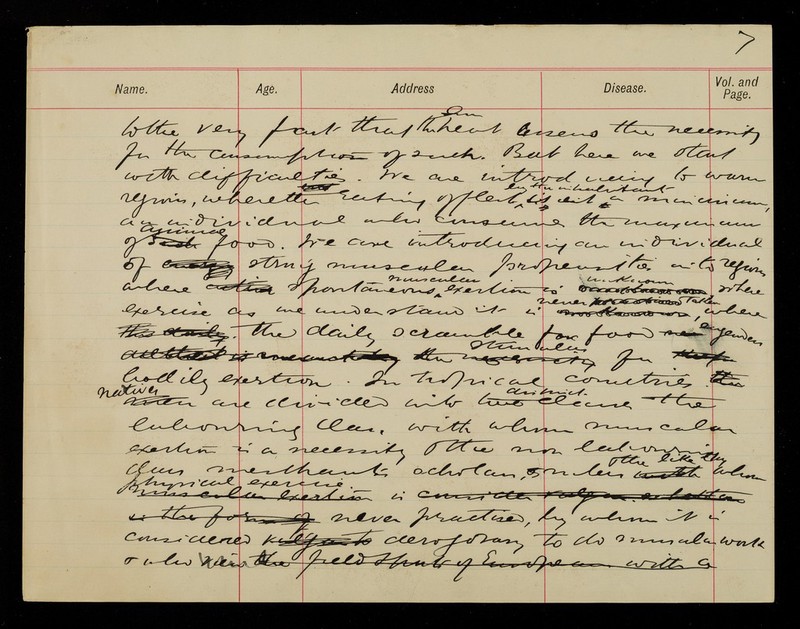 7
Name. Age. Address Disease. Vol. and Page.
to the very fact that the heat lessens the necessity
for the consumption of such. But here we start
with difficulties. We are introducing to warm
regions, where the eating of flesh is at a minimum,
an individual who consumes the maximum
of animal food. We are introducing an individual
of strong muscular propensities into regions
where spontaneous muscular exertion is unknown where
exercise as we understand it is never taken, where
the daily scramble for food engenders
the stimulus for
bodily exertion. In tropical countries the
natives are divided into two distinct classes the
labouring class, with whom muscular
exertion is a necessity & the non labouring
class merchants scholars, & others like them with whom
physical exercise
muscular exertion is
is the form of never practised, by whom it is
considered derogatory to do muscular work
& who view the field sports of Europeans with a